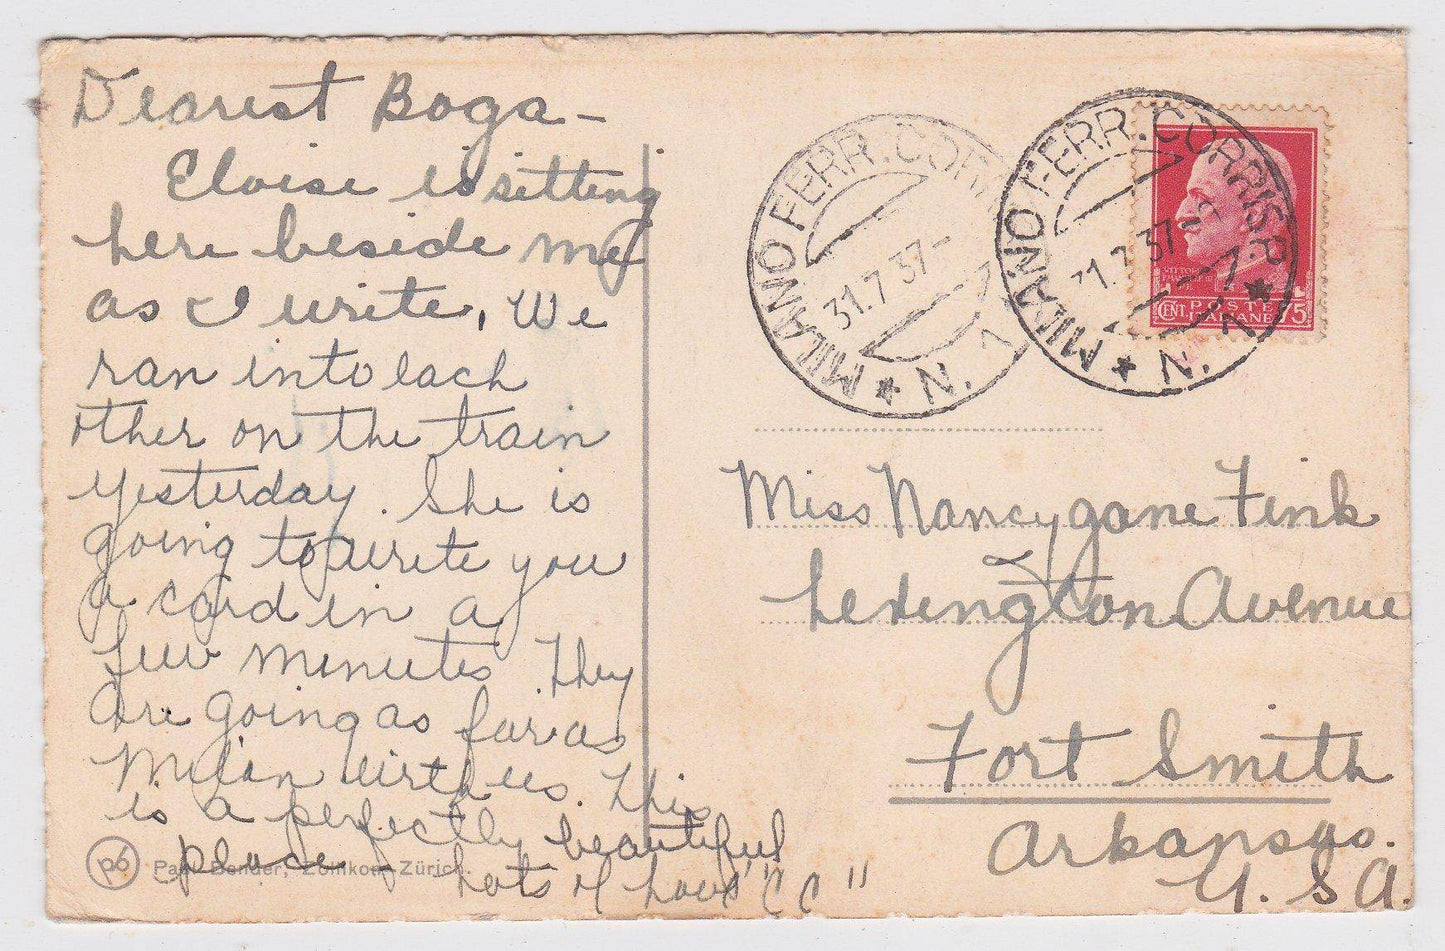 Dearest Boga –
Eloise is sitting
here beside me
as I write. We
ran into each
other on the train
yesterday. She is
going to write you
a card in a
few minutes. They
are going as far as
Milan with us. This
is a perfectly beautiful
place Lots of Love "CC"
pb Paul Bender, Zollikon-Zürich.
MILANO FERR. CORR
31.7 37-
N. 1
MILANO FERR. CORRISP.
31.7 37-
N. 1
VITTORIO
CENT. POSTE ITALIANE 75
Miss Nancy Jane Fink
Lexington Avenue
Fort Smith
Arkansas.
U.S.A.